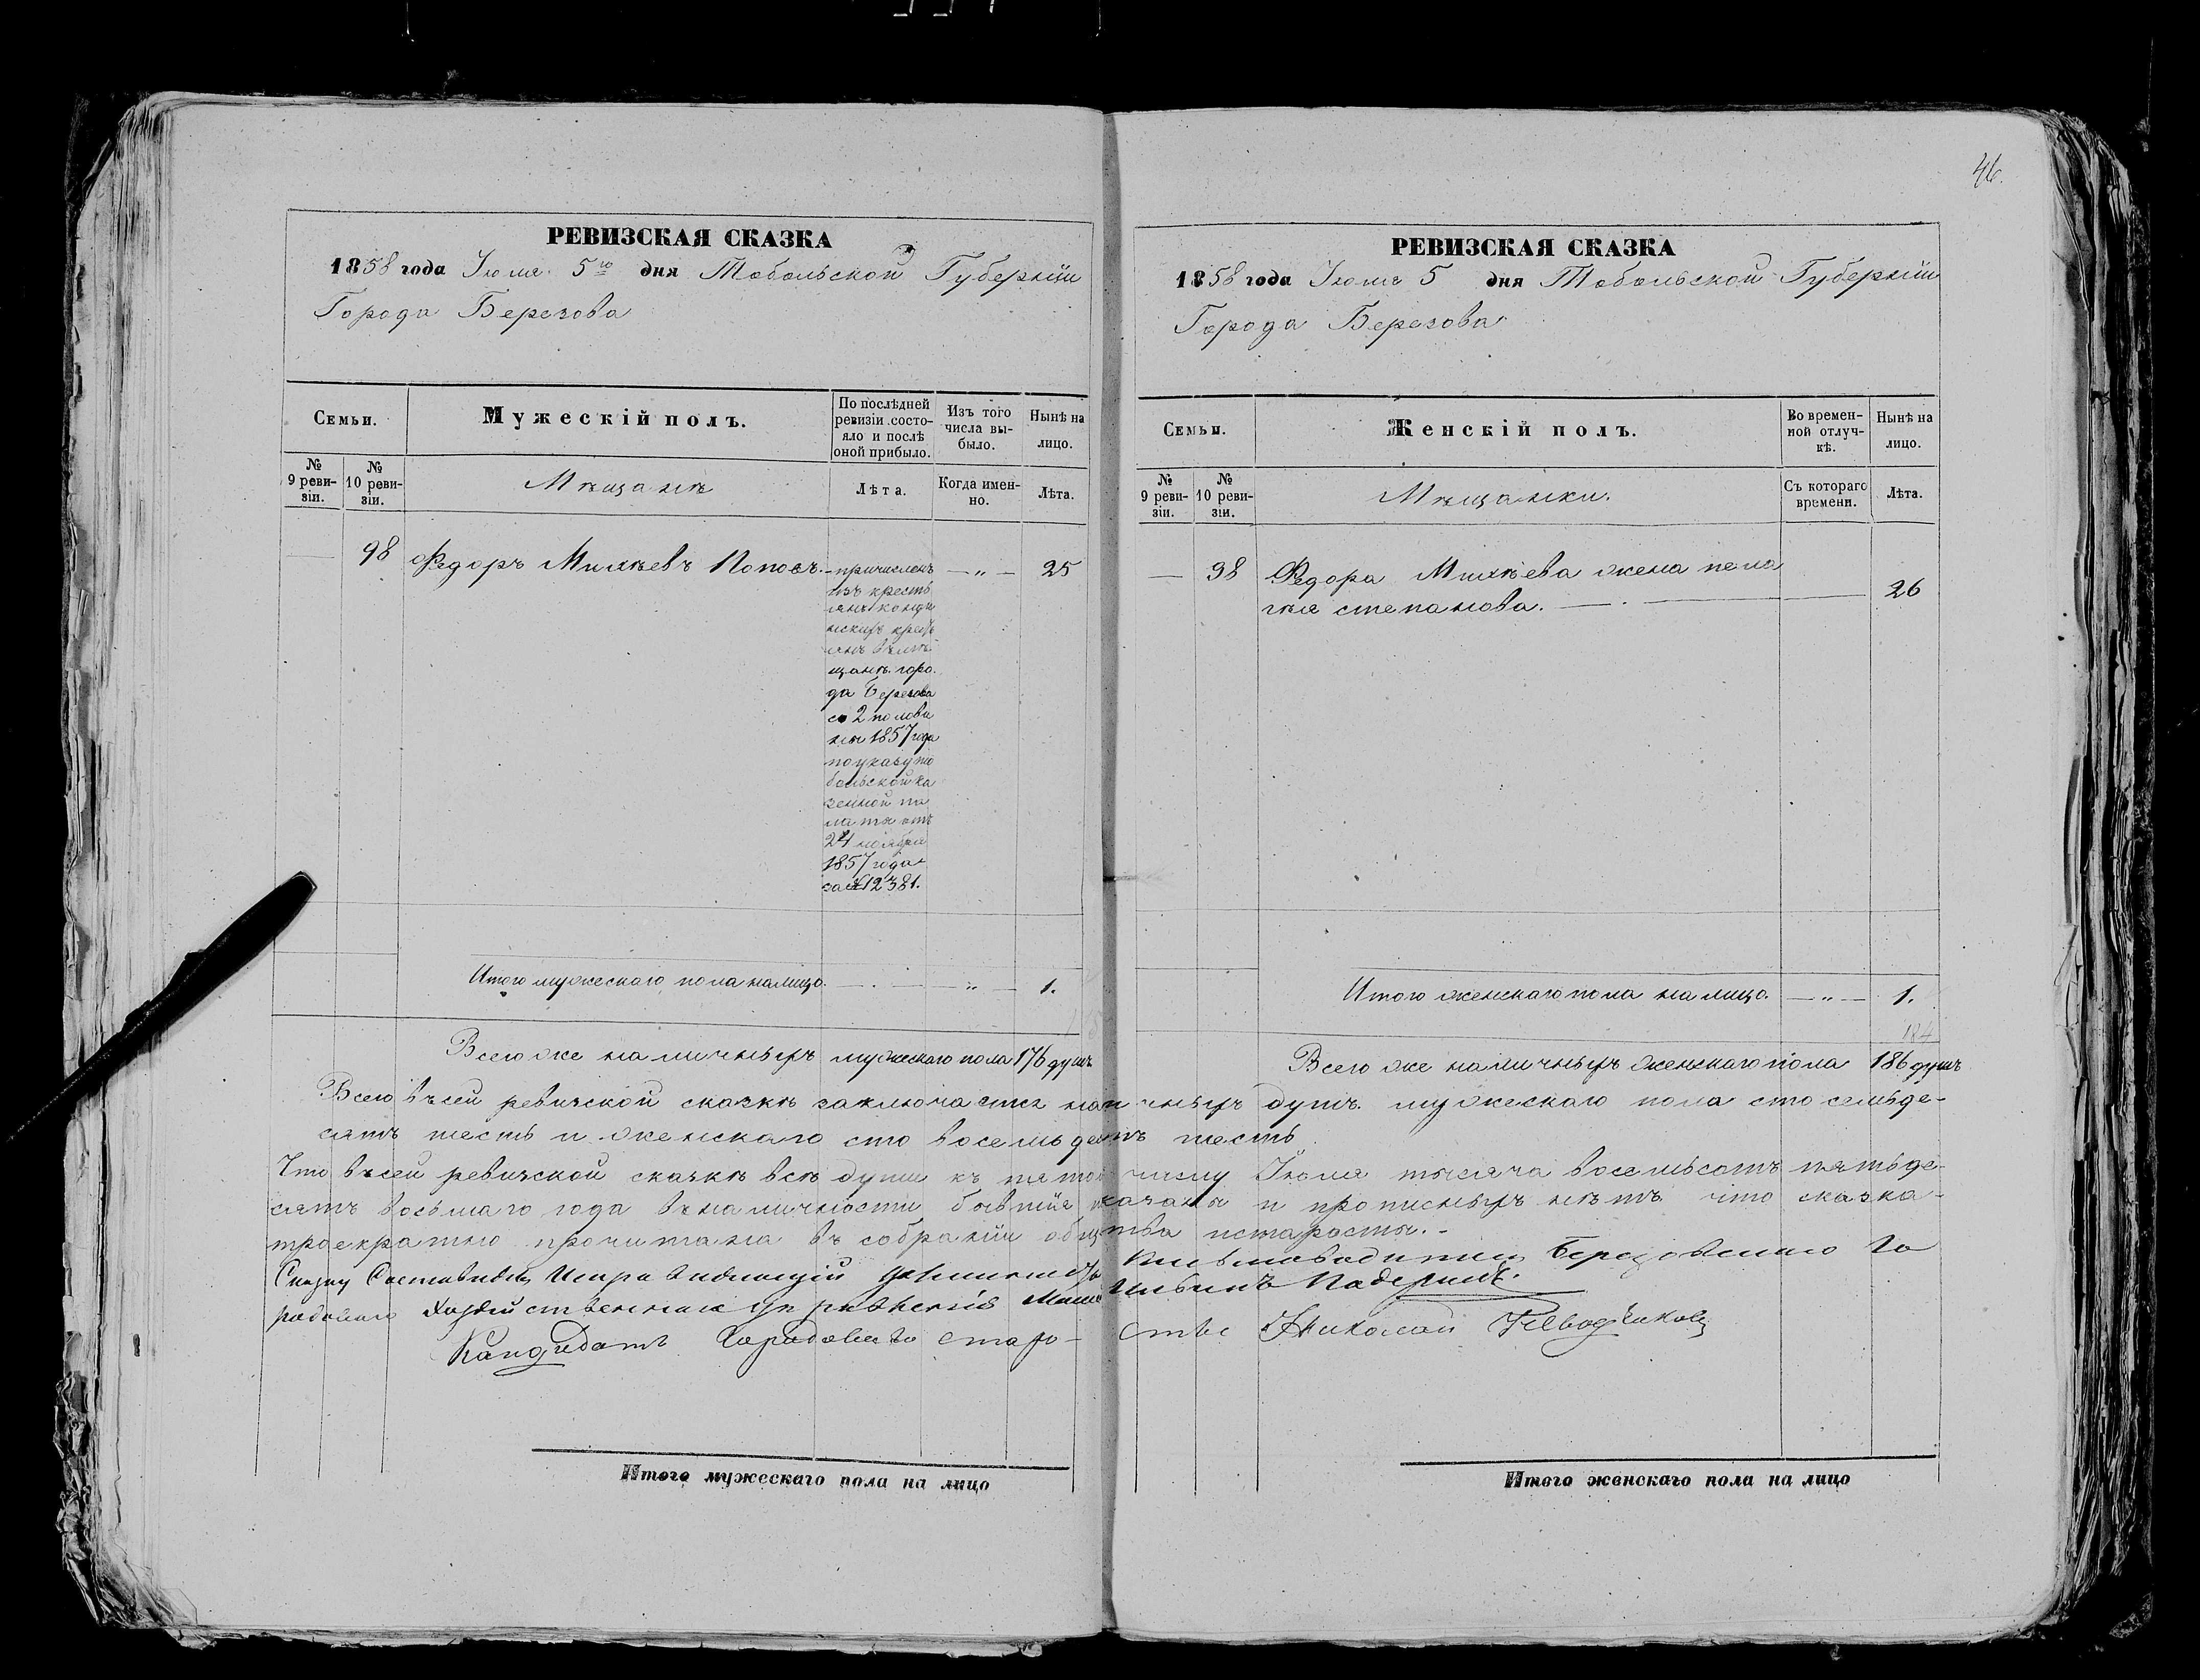 46.
РЕВИЗСКАЯ СКАЗКА
1858 года Іюля 5го дня Тобольской Губерніи
Города Березова
Семьи.
Мужескій полъ.
По послѣдней ревизіи состо-яло и послѣ оной прибыло.
Изъ того числа вы-было.
Нынѣ на лицо.
№ 9 реви-зіи.
№ 10 реви-зіи.
Мѣщане
Лѣта.
Когда имен-но.
Лѣта.
98 Федоръ Михѣевъ Поповъ. причисленъ — „ — 25
изъ кресть
янъ конди
нскихъ кресть
янъ въ мѣ
щане горо
да Березова
со 2 полови
ны 1857 года
по указу то
больской ка
зенной па
латы отъ
24 ноября
1857 года
за № 12381.
Итого мужескаго пола налицо. — „ — 1.
Всего же наличныхъ мужескаго пола 176 душъ
РЕВИЗСКАЯ СКАЗКА
1858 года Іюля 5 дня Тобольской Губерніи
Города Березова
Семьи.
Женскій полъ.
Во времен-ной отлуч-кѣ.
Нынѣ на лицо.
№ 9 реви-зіи.
№ 10 реви-зіи.
Мѣщанки.
Съ котораго времени.
Лѣта.
98 Федора Михѣева жена пела
гея степанова. 26
Итого женскаго пола на лицо. — „ — 1.
184
Всего же наличныхъ женскаго пола 186 душъ
Всего въ сей ревизской сказкѣ заключается наличныхъ душъ мужескаго пола сто семьде-
сятъ шесть и женскаго сто восемьдесятъ шесть
Что въ сей ревизской сказкѣ всѣ души къ пятому числу Іюля тысяча восемьсотъ пятьде-
сятъ восьмаго года въ наличности бывшія показаны и прописныхъ нѣтъ что сказка
троекратно прочитана въ собраніи общества и старосты.
Сказку Составилъ Исправляющій должность Письмоводителя Березовскаго Го
родоваго Хозяйственнаго управленія Падеринъ.
Кандидатъ Городоваго старо-сты Николай
Итого мужескаго пола на лицо
Итого женскаго пола на лицо